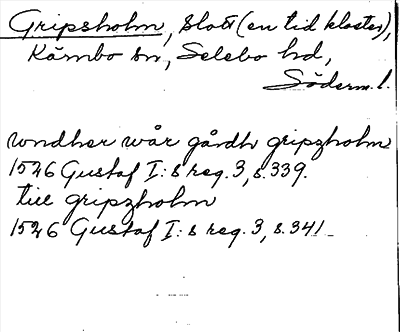 Gripsholm, slott (en tid kloster),
Kärnbo sn, Selebo hd,
Söderm.l.
wndher wår gårdh gripzholm
1526 Gustaf I:s reg. 3, s. 339.
till gripzholm
1526 Gustaf I:s reg. 3, s. 341